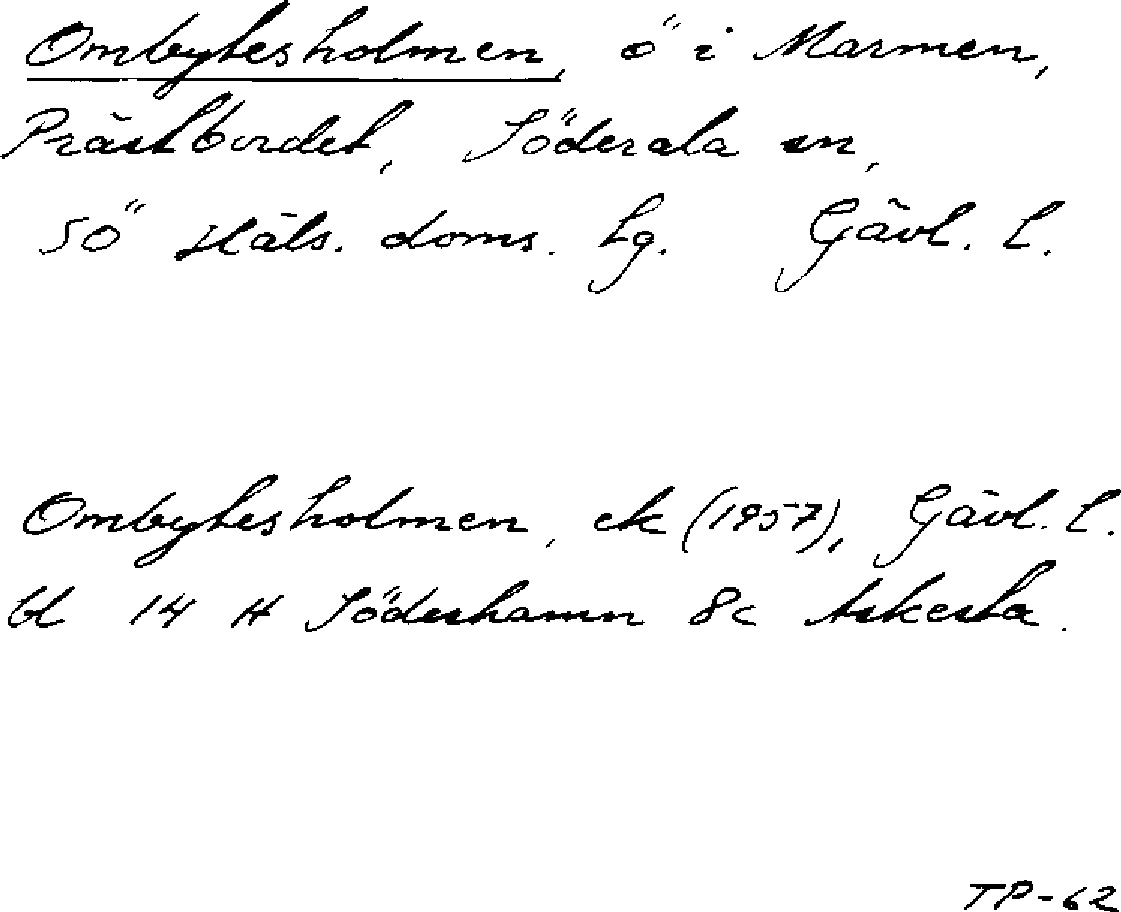 Ombytesholmen, ö i Marmen,
Prästbordet, Söderala sn,
SÖ Häls. doms. tg. Gävl. l.
Ombytesholmen, ek (1957), Gävl. l.
bl 14 H Söderhamn 8c Askesta.
TP-62